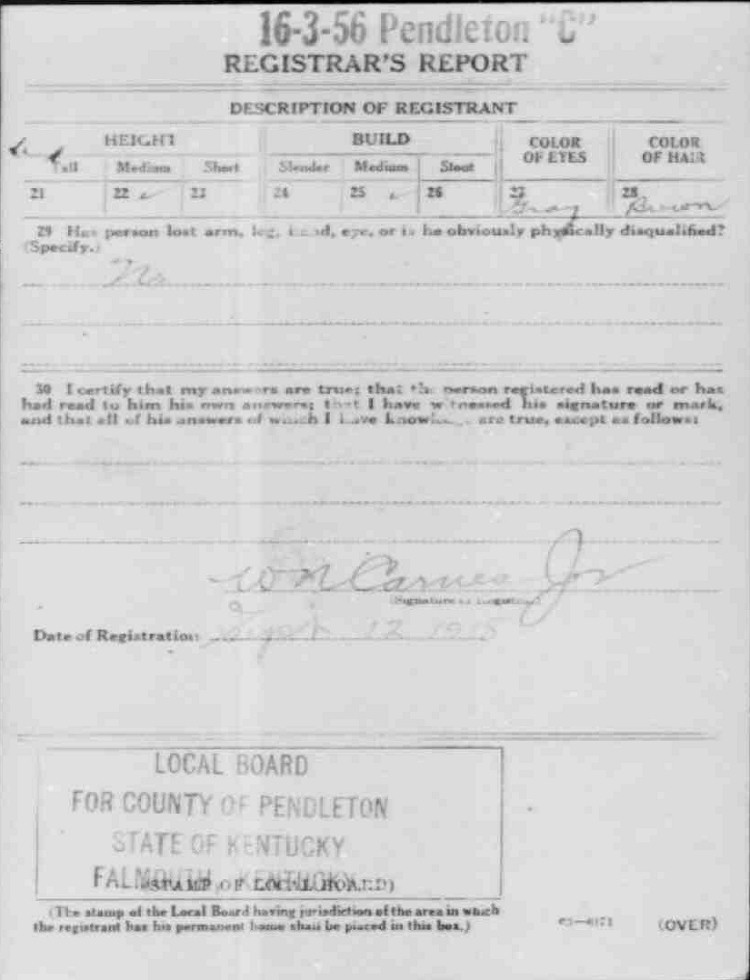 16-3-56 Pendleton "C"
REGISTRAR'S REPORT
DESCRIPTION OF REGISTRANT
HEIGHT BUILD COLOR OF EYES COLOR OF HAIR
Tall Medium Short Slender Medium Stout
21 22 23 24 25 26 27 Gray 28 Brown
29 Has person lost arm, leg, hand, eye, or is he obviously physically disqualified?
(Specify.)
No
30 I certify that my answers are true; that the person registered has read or has
had read to him his own answers; that I have witnessed his signature or mark,
and that all of his answers of which I have knowledge are true, except as follows:
W N Carnes Jr
(Signature of Registrar)
Date of Registration: Sept 12 1918
LOCAL BOARD
FOR COUNTY OF PENDLETON
STATE OF KENTUCKY
FALMOUTH, KENTUCKY
(STAMP OF LOCAL BOARD)
(The stamp of the Local Board having jurisdiction of the area in which
the registrant has his permanent home shall be placed in this box.)
(OVER)